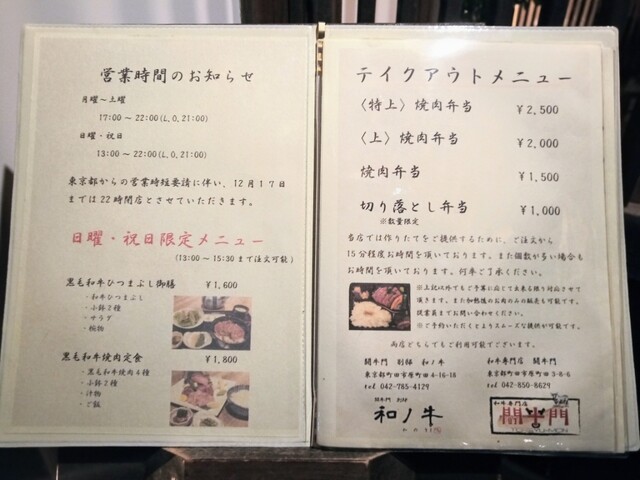 営業時間のお知らせ
月曜～土曜
17:00 ～ 22:00(L.O.21:00)
日曜・祝日
13:00 ～ 22:00(L.O.21:00)
東京都からの営業時短要請に伴い、12月17日
までは22時閉店とさせていただきます。
日曜・祝日限定メニュー
(13:00～15:30まで注文可能)
黒毛和牛ひつまぶし御膳 ¥1,600
・和牛ひつまぶし
・小鉢2種
・サラダ
・椀物
黒毛和牛焼肉定食 ¥1,800
・黒毛和牛焼肉4種
・小鉢2種
・汁物
・ご飯
テイクアウトメニュー
〈特上〉焼肉弁当 ¥2,500
〈上〉焼肉弁当 ¥2,000
焼肉弁当 ¥1,500
切り落とし弁当 ¥1,000
※数量限定
当店では作りたてをご提供するために、ご注文から
15分程度お時間を頂いております。また個数が多い場合も
お時間を頂いております。何卒ご了承ください。
※上記以外でもご予算に応じて出来る限り対応させて
頂きます。また加熱後のお肉のみの販売も可能です。
従業員までお問い合わせください。
※ご予約いただくとよりスムーズな提供が可能です。
両店どちらもご利用可能でございます。
闘牛門 別邸 和ノ牛
東京都町田市原町田4-16-18
tel 042-785-4129
和牛専門店 闘牛門
東京都町田市原町田3-8-6
tel 042-850-8629
闘牛門 別邸
和ノ牛
和牛専門店
闘牛門